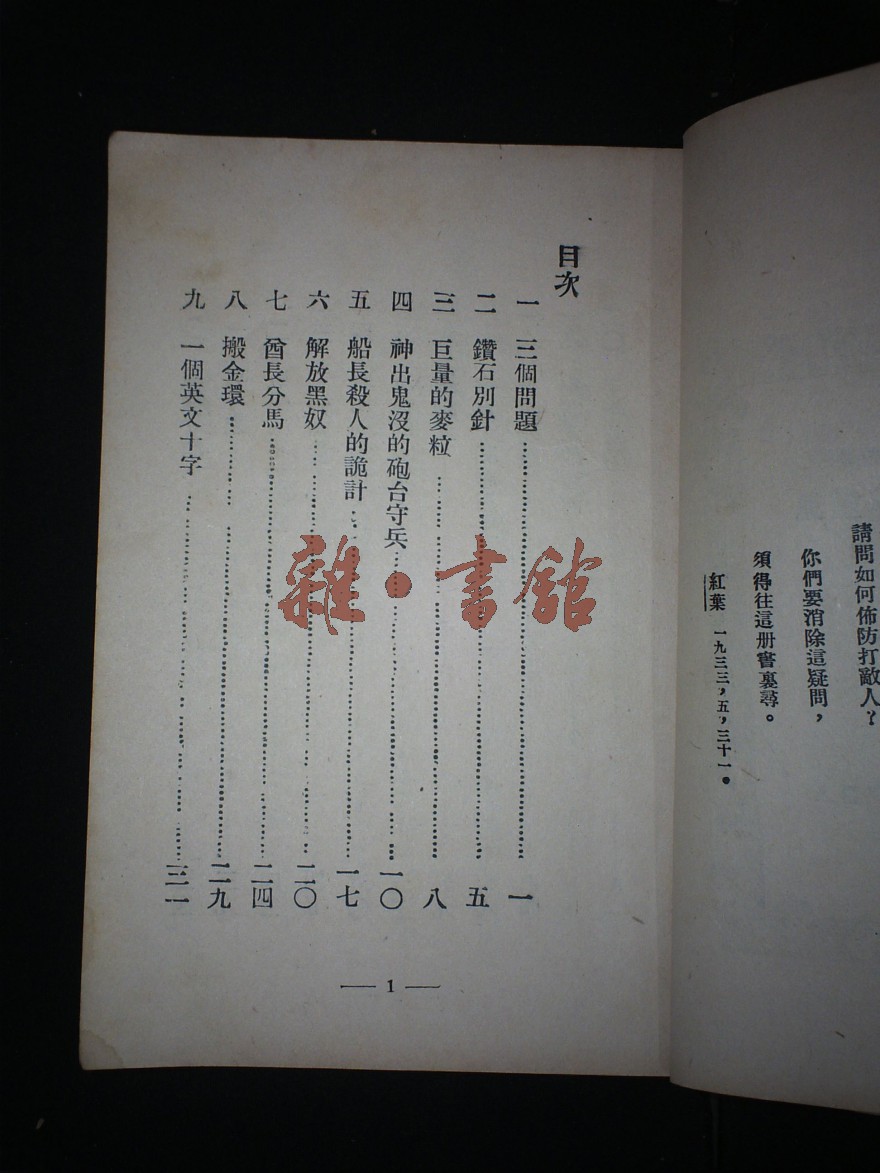 請問如何佈防打敵人？
你們要消除這疑問，
須得往這册書裏尋。
紅葉 一九三三，五，三十一。
目次
一 三個問題 一
二 鑽石別針 五
三 巨量的麥粒 八
四 神出鬼沒的砲台守兵 一〇
五 船長殺人的詭計 一七
六 解放黑奴 二〇
七 酋長分馬 二四
八 搬金環 二九
九 一個英文十字 三一
— 1 —
雜·書館